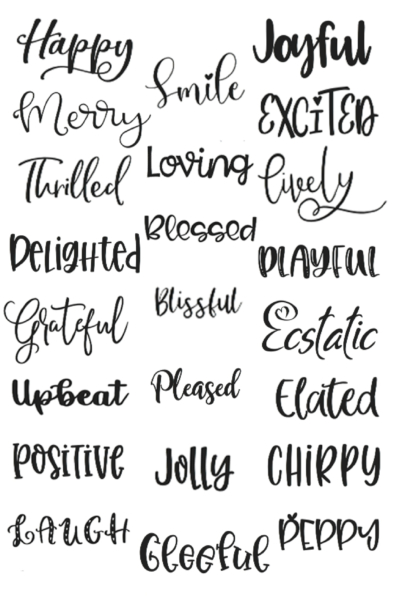 Happy
Smile
Joyful
Merry
EXCiTED
Thrilled
Loving
lively
Delighted
Blessed
PLAYFUL
Grateful
Blissful
Ecstatic
Upbeat
Pleased
Elated
POSiTiVE
Jolly
CHiRPY
LAUGH
Gleeful
PEPPY